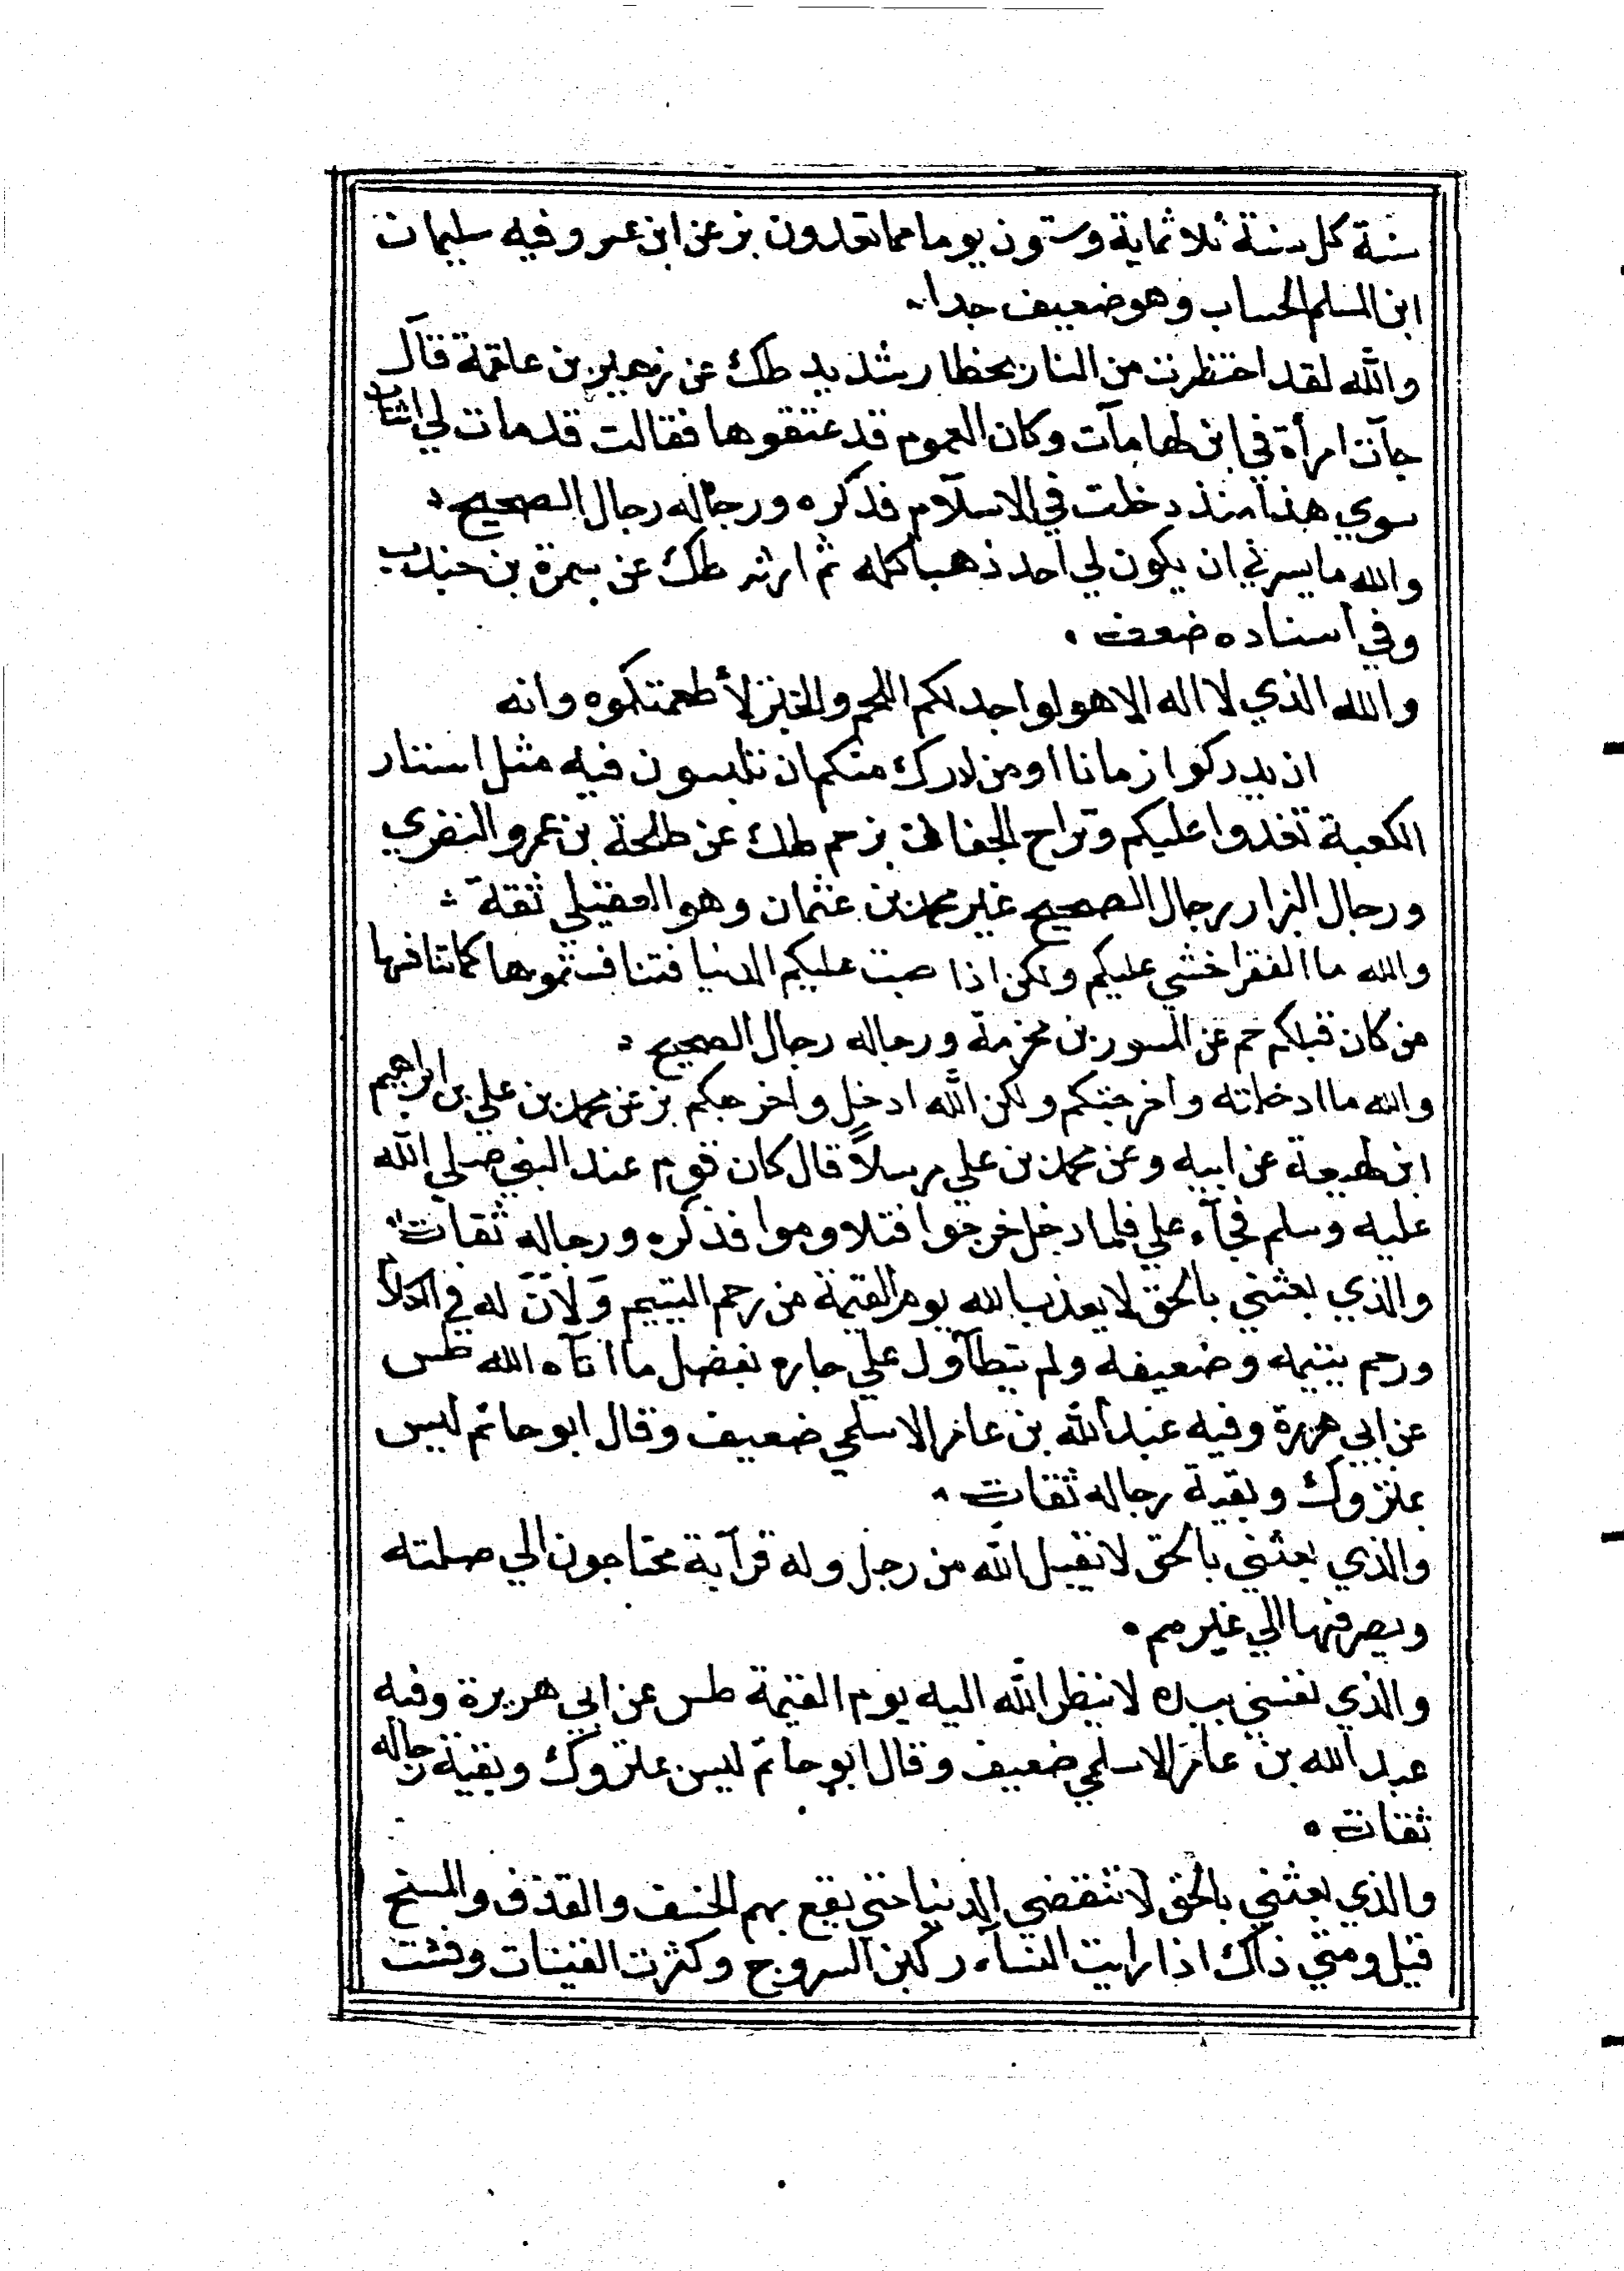 سنة كل سنة ثلاثماية وستون يوما مما تعدون بز عن ابن عمر وفيه سليمان
ابن المسلم الحساب وهو ضعيف جدا
والله لقد احتظرت من النار بحظار شديد طك عن زهير بن علقمة قال
جآت امرأة في ابن لها مات وكان القوم قد عنقوها فقالت قد مات لي اثنان
سوي هذا منذ دخلت في الاسلام فذكره ورجاله رجال الصحيح
والله ما يسرني ان يكون لي احد ذهبا كله ثم ارثه طك عن سمرة بن جندب
وفي اسناده ضعف
والله الذي لا اله الا هو لو اجد لكم اللحم والخبز لأطعمتكموه وانه
ان يدركوا زمانا او من ادرك منكم ان تلبسون فيه مثل استار
الكعبة تغدوا عليكم وتراح الجفان بز حم طك عن طلحة بن عمرو النضري
ورجال البزار رجال الصحيح غير محمد بن عثمان وهو العقيلي ثقة
والله ما الفقر اخشي عليكم ولكن اذا صبت عليكم الدنيا فتنافستموها كما تنافسها
من كان قبلكم حم عن المسور بن مخرمة ورجاله رجال الصحيح
والله ما ادخلته واخرجتكم ولكن الله ادخله واخرجكم بز عن محمد بن علي بن ابراهيم
ابن لهيعة عن ابيه وعن محمد بن علي مرسلاً قال كان قوم عند النبي صلي الله
عليه وسلم فجآء علي فلما دخل خرجوا فتلاوموا فذكره ورجاله ثقات
والذي بعثني بالحق لا يعذب الله يوم القيمة من رحم اليتيم ولان له في الكلام
ورحم يتيمه وضعيفه ولم يتطاول علي جاره بفضل ما اتآه الله طس
عن ابي هريرة وفيه عبد الله بن عامر الاسلمي ضعيف وقال ابو حاتم ليس
بمتروك وبقية رجاله ثقات
والذي بعثني بالحق لا يقبل الله من رجل وله قرآبة محتاجون الي صلته
ويصرفها الي غيرهم
والذي نفسي بيده لا ينظر الله اليه يوم القيمة طس عن ابي هريرة وفيه
عبد الله بن عامر الاسلمي ضعيف وقال ابو حاتم ليس بمتروك وبقية رجاله
ثقات
والذي بعثني بالحق لا تنقضي الدنيا حتي يقع بهم الخسف والقذف والمسخ
قيل ومتي ذاك اذا رايت النسآء ركبن السروج وكثرت القينات وفشت